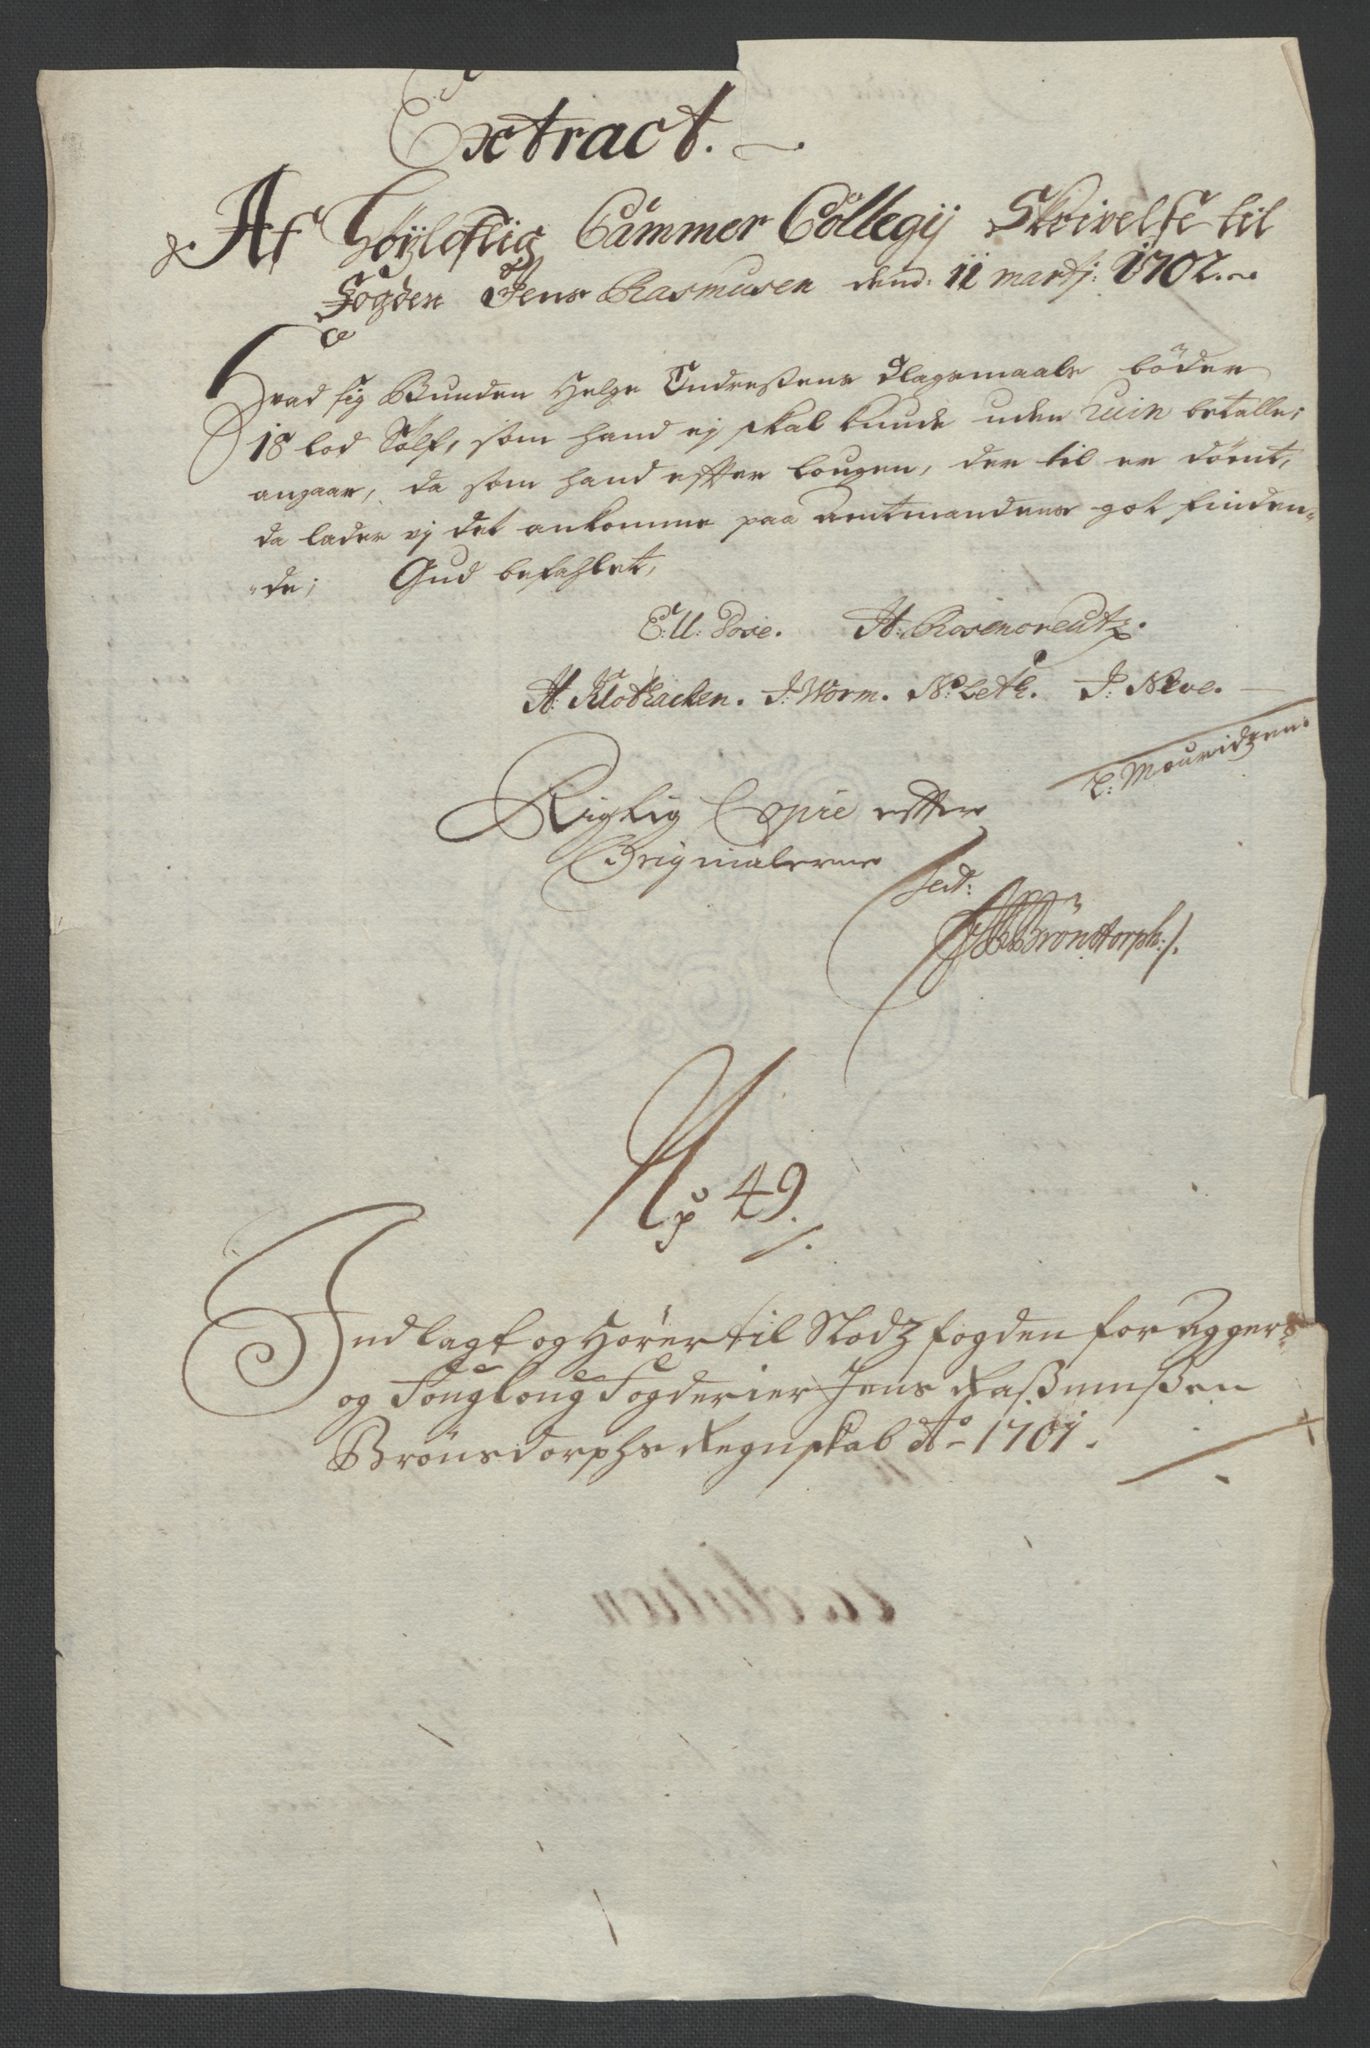 Extract.
Af Höÿloflig Cammer Collegij Skrivelse til
Fogden Jens Rasmusen dend: 11 martj: 1702.
Hvad sig Bunden Helge Endresens Slagsmaals böder
18 lod Sölf, som hand ej skal kunde uden ruin betalle;
angaar, da som hand efter lougen, der til er dömt,
da lader vj det ankomme paa Amtmandens got finden-
-de; Gud befahlet,
C: U: Pose. H: Rosencreutz.
H: Klotzacken. J: Worm. N: Leth. J: Neve.
C: Mouridzen.
Rigtig Copie efter
Originalerne
Test:
JR Brönstorph:/.
No 49.
Indlagt og Hörer til Slodz fogden for Aggers-
og Fougloug Fogderier Jens Rassmussen
Brönsdorphs Regnskab Ao 1701.